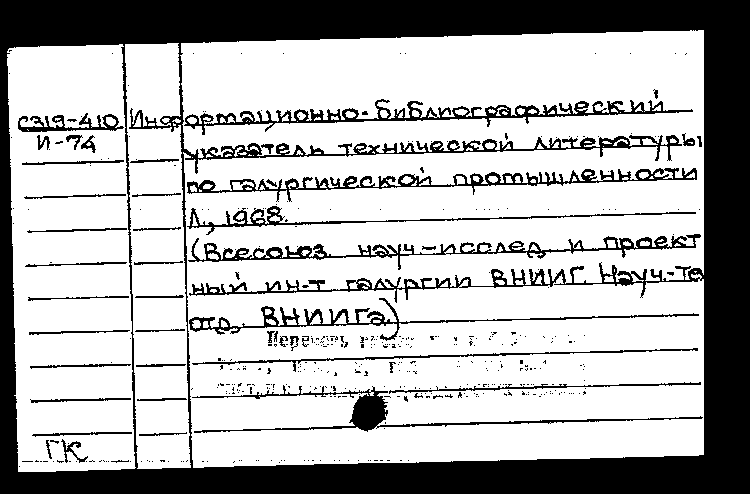 С319-410 Информационно-библиографический
И-74 указатель технической литературы
по галургической промышленности
Л., 1968.
(Всесоюз. науч.-исслед. и проект
ный ин-т галургии ВНИИГ. Науч.-те
отд. ВНИИГа)
Перечень
ГК